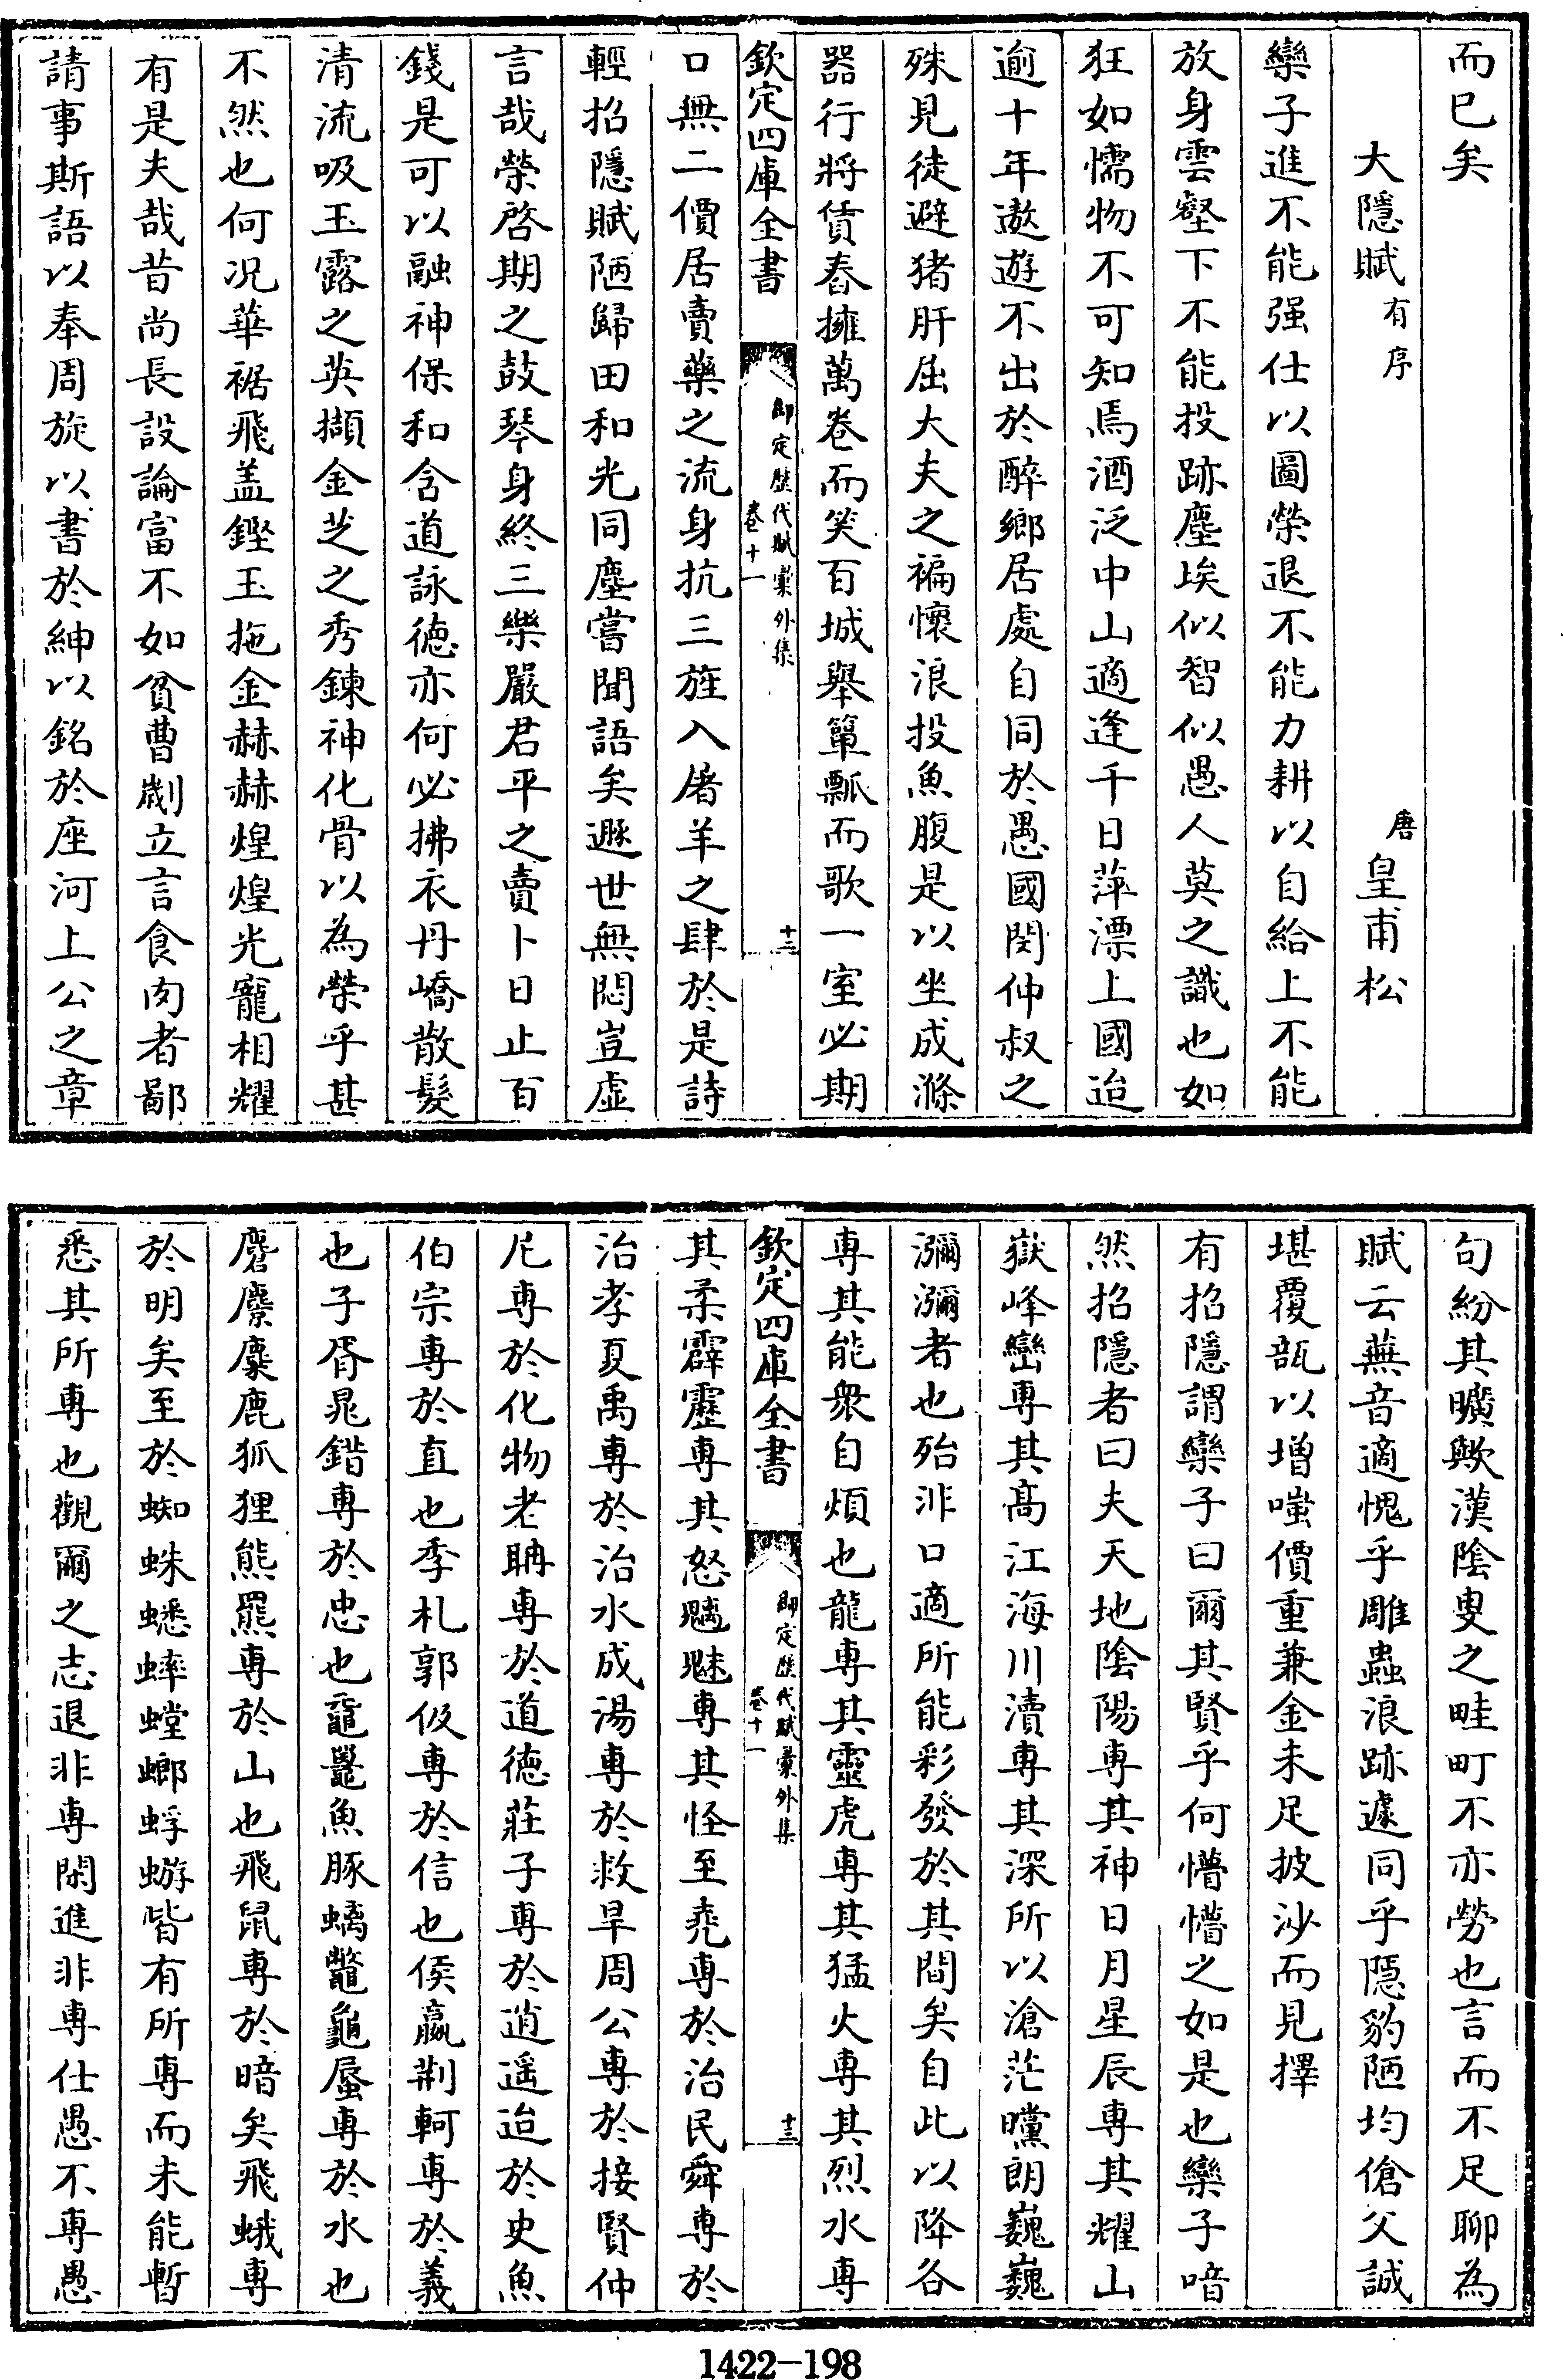 而已矣
大隱賦有序 唐皇甫松
欒子進不能强仕以圖榮退不能力耕以自給上不能
放身雲壑下不能投跡塵埃似智似愚人莫之識也如
狂如懦物不可知焉酒泛中山適逢千日萍漂上國迨
逾十年遨遊不出於醉鄉居處自同於愚國閔仲叔之
殊見徒避猪肝屈大夫之褊懷浪投魚腹是以坐成滌
器行將賃舂擁萬卷而笑百城舉簞瓢而歌一室必期
欽定四庫全書 御定歷代賦彙外集 卷十一 十二
口無二價居賣藥之流身抗三旌入屠羊之肆於是詩
輕招隱賦陋歸田和光同塵嘗聞語矣遯世無悶豈虛
言哉榮啓期之鼓琴身終三樂嚴君平之賣卜日止百
錢是可以融神保和含道詠德亦何必拂衣丹嶠散髮
清流吸玉露之英擷金芝之秀鍊神化骨以為榮乎甚
不然也何况華裾飛盖鏗玉拖金赫赫煌煌光寵相耀
有是夫哉昔尚長設論富不如貧曹劌立言食肉者鄙
請事斯語以奉周旋以書於紳以銘於座河上公之章
句紛其曠歟漢陰叟之畦町不亦勞也言而不足聊為
賦云蕪音適愧乎雕蟲浪跡遽同乎隱豹陋均傖父誠
堪覆瓿以增嗤價重兼金未足披沙而見擇
有招隱謂欒子曰爾其賢乎何懵懵之如是也欒子喑
然招隱者曰夫天地陰陽專其神日月星辰專其耀山
嶽峰巒專其高江海川瀆專其深所以滄茫曭朗巍巍
瀰瀰者也殆非口適所能彩發於其間矣自此以降各
專其能衆自煩也龍專其靈虎專其猛火專其烈水專
欽定四庫全書 御定歷代賦彙外集 卷十一 十三
其柔霹靂專其怒魑魅專其怪至堯專於治民舜專於
治孝夏禹專於治水成湯專於救旱周公專於接賢仲
尼專於化物老聃專於道德莊子專於逍遥迨於史魚
伯宗專於直也季札郭伋專於信也侯嬴荆軻專於義
也子胥晁錯專於忠也黿鼉魚豚螭鼈龜蜃專於水也
麏麖麋鹿狐狸熊羆專於山也飛鼠專於暗矣飛蛾專
於明矣至於蜘蛛蟋蟀螳螂蜉蝣皆有所專而未能暫
悉其所專也觀爾之志退非專閑進非專仕愚不專愚
1422-198